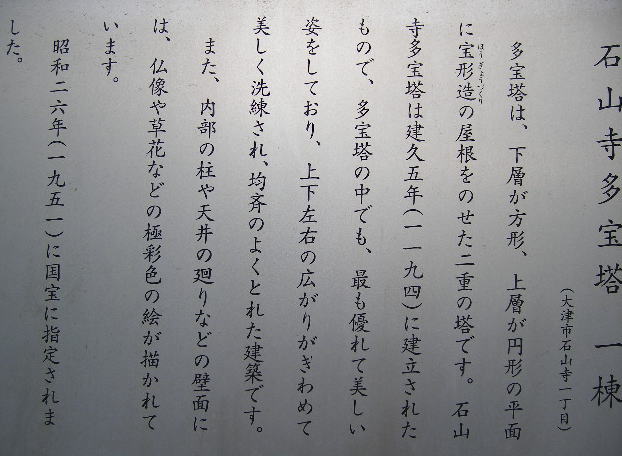 石山寺多宝塔 一棟
（大津市石山寺一丁目）
多宝塔は、下層が方形、上層が円形の平面
に宝形造の屋根をのせた二重の塔です。石山
ほうぎょうづくり
寺多宝塔は建久五年（一一九四）に建立された
もので、多宝塔の中でも、最も優れて美しい
姿をしており、上下左右の広がりがきわめて
美しく洗練され、均斉のよくとれた建築です。
また、内部の柱や天井の廻りなどの壁面に
は、仏像や草花などの極彩色の絵が描かれて
います。
昭和二六年（一九五一）に国宝に指定されま
した。